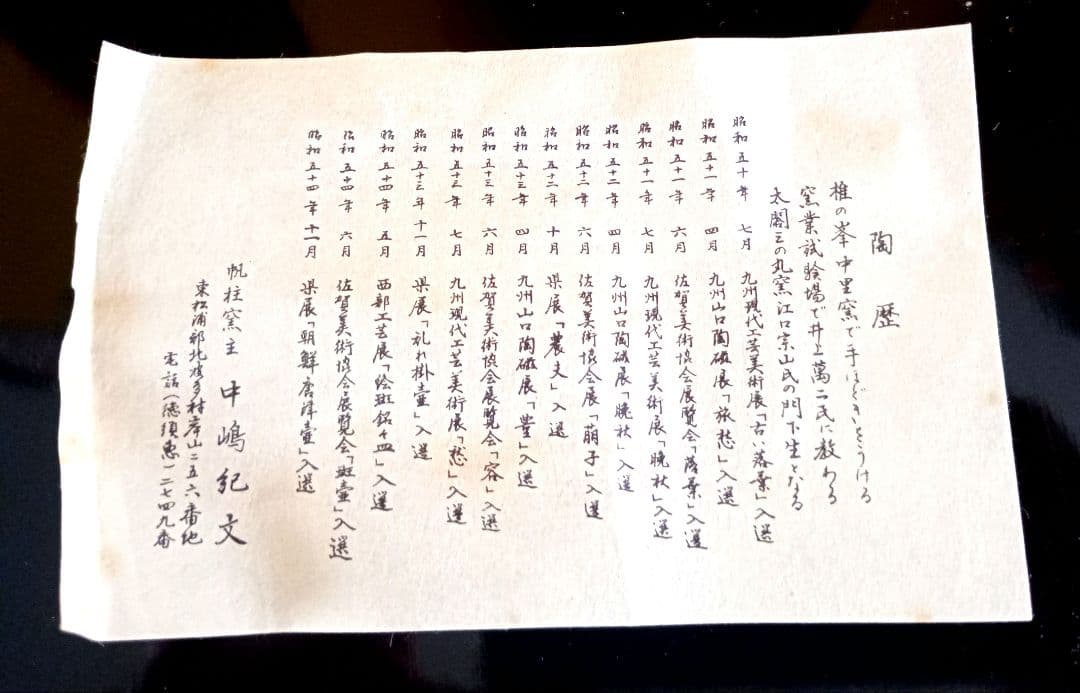 陶歴
椎の峯中里窯で手ほどきをうける
窯業試験場で井上萬二氏に教わる
太閤三の丸窯江口宗山氏の門下生となる
昭和五十年 七月 九州現代工芸美術展「古い落葉」入選
昭和五十一年 四月 九州山口陶磁展「旅愁」入選
昭和五十一年 六月 佐賀美術協会展覧会「落葉」入選
昭和五十一年 七月 九州現代工芸美術展「晩秋」入選
昭和五十二年 四月 九州山口陶磁展「晩秋」入選
昭和五十二年 六月 佐賀美術協会展「萠子」入選
昭和五十二年 十月 県展「農夫」入選
昭和五十三年 四月 九州山口陶磁展「豊」入選
昭和五十三年 六月 佐賀美術協会展覧会「容」入選
昭和五十三年 七月 九州現代工芸美術展「愁」入選
昭和五十三年 十一月 県展「礼れ掛壷」入選
昭和五十四年 五月 西部工芸展「絵斑銘々皿」入選
昭和五十四年 六月 佐賀美術協会展覧会「斑壷」入選
昭和五十四年 十一月 県展「朝鮮唐津壷」入選
帆柱窯主 中嶋紀文
東松浦郡北波多村岸山二五六番地
電話(徳須恵)二七四九番